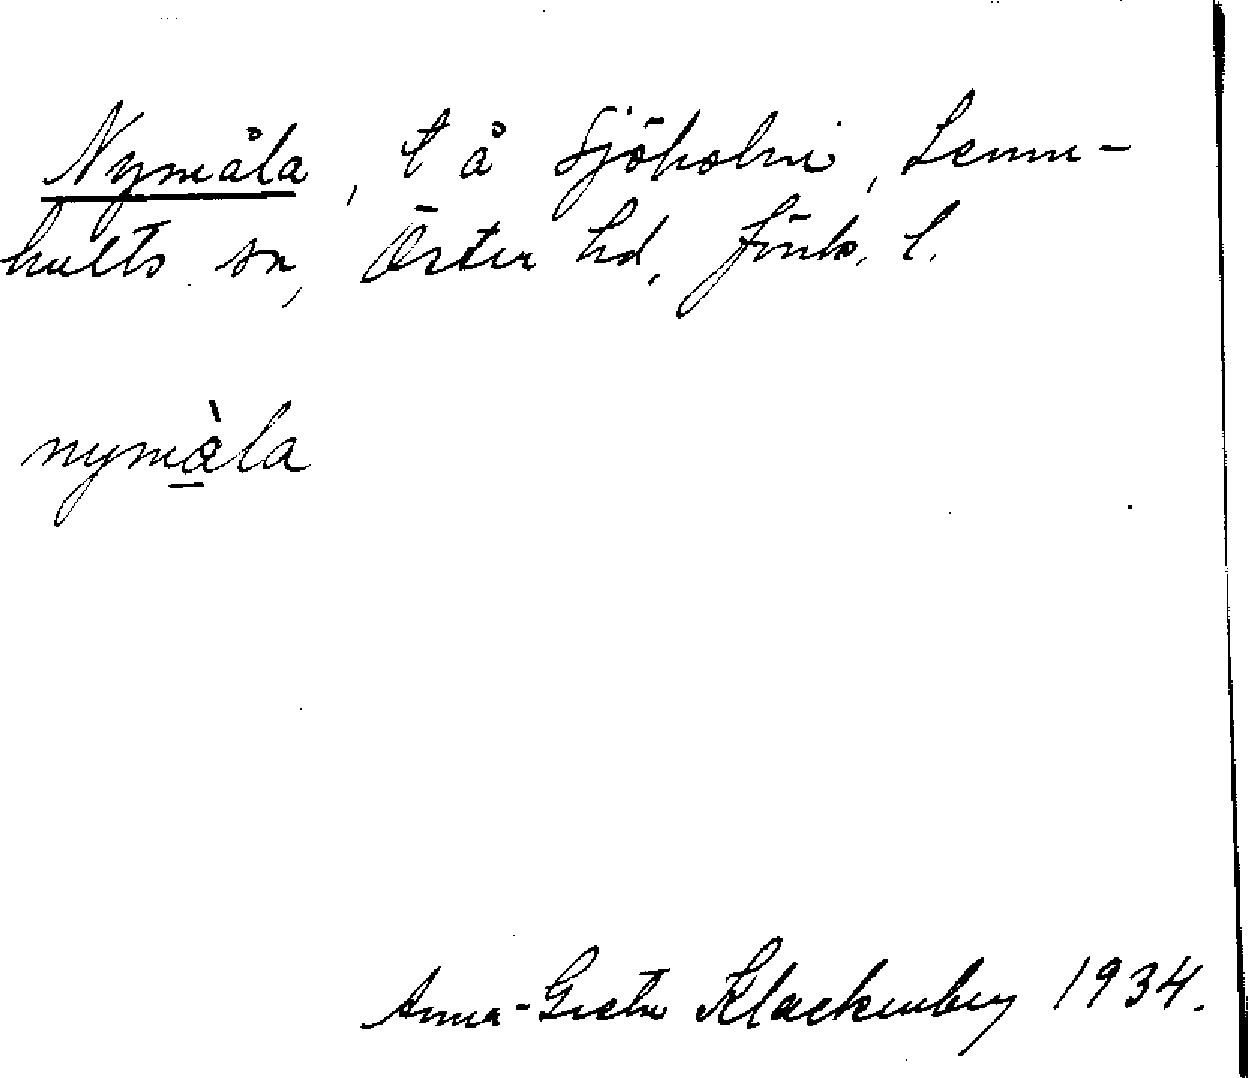 Nymåla, t å Sjöholm, Lemn-
hults sn, Östra hd, Jönk. l.
nymàla
Anna-Greta Klackenberg 1934.